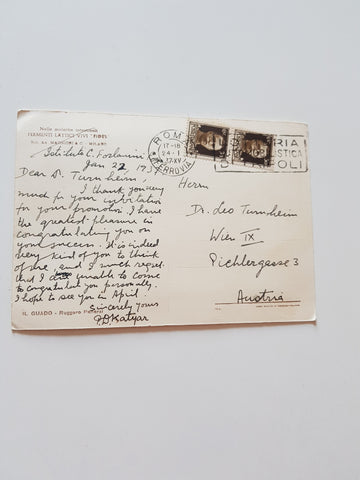 Nelle autointossicazioni
FERMENTI LATTICI VIVI "FIDES"
MILANO
Istituto C. Forlanini
Jan 22, 1937
Dear Dr. Turnheim,
I thank you very
much for your invitation
for your promotion. I have
the greatest pleasure in
congratulating you on
your success. It is indeed
very kind of you to think
of me, and I much regret
that I am unable to come
to congratulate you personally.
I hope to see you in April.
Sincerely yours
P.D. Katyar
IL GUADO - Ruggero
ROMA
17-18
24-1
37-XV
FERROVIA
Herrn
Dr. Leo Turnheim
Wien IX
Pichlergasse 3
Austria